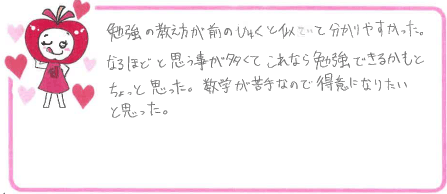 勉強の教え方が前のじゅくと似ていて分かりやすかった。
なるほどと思う事が多くてこれなら勉強できるかもと
ちょっと思った。数学が苦手なので得意になりたい
と思った。